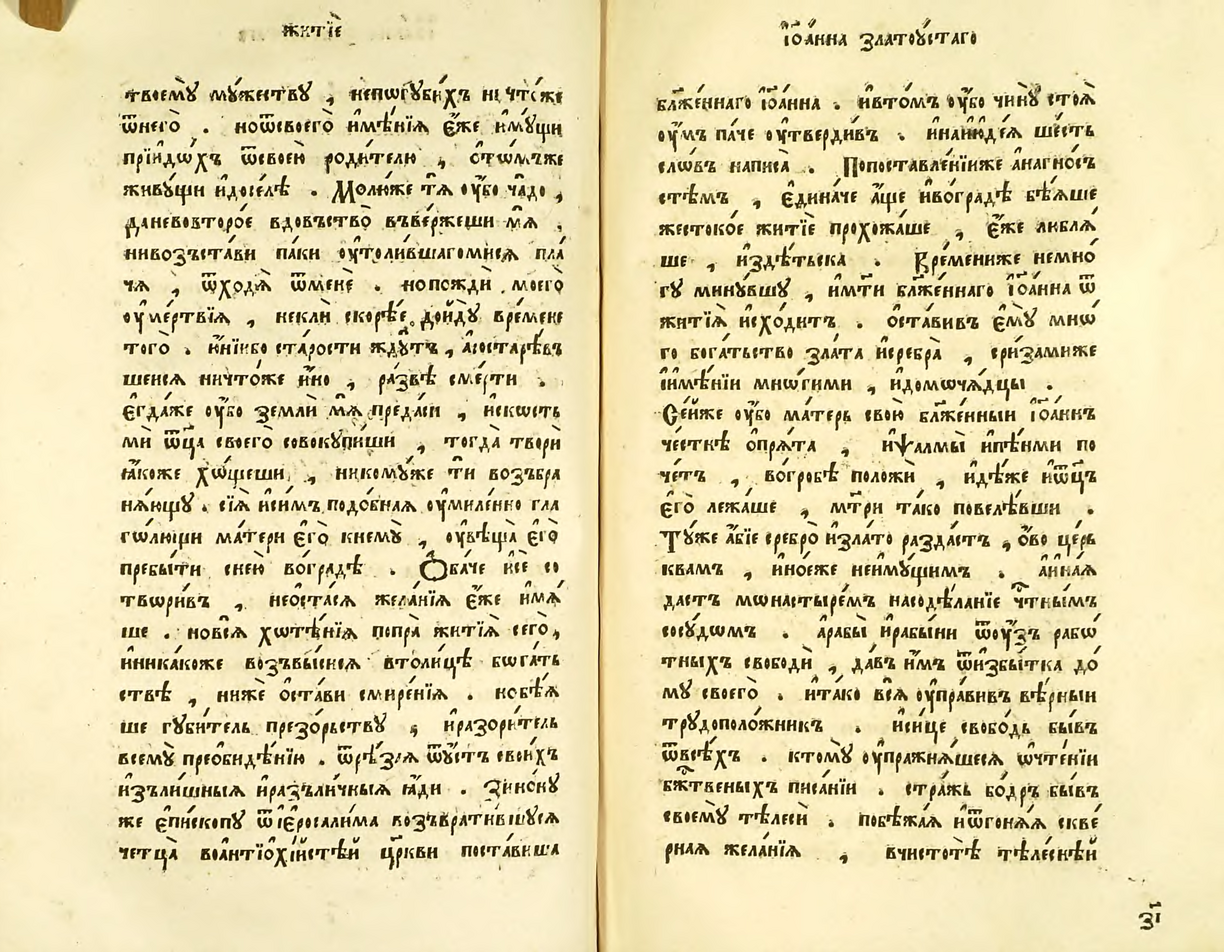 житїѐ
твоемꙋ̀ мꙋ́жествꙋ , непогꙋби́хъ ничто́же
ѿнего̀ . ноѿсвоего̀ имѣ́нїѧ є҆́же имꙋ́щи
прїидо́хъ ѿсвоею̀ роди́телю , ѿтѡ́мъже
живꙋ́щи идоселѣ̀ . Молю́же тѧ̀ оу҆́бо ча́до ,
даневовторо́е вдовъство̀ въве́ржеши мѧ̀ ,
нивозъста́ви па́ки оу҆то́лившагомисѧ пла́
чѧ , ѿходѧ̀ ѿменѐ . нопождѝ моего̀
оу҆ме́ртвїѧ , некли скорѣ́е дои́дꙋ вре́мене
того̀ . и҆нїи́бо ста́рости ждꙋ́тъ , асостарѣ́въ
шеисѧ ничто́же и҆́но , ра́звѣ сме́рти .
є҆гда́же оу҆́бо землѝ мѧ̀ преда́си , искость
мѝ ѿц҃а̀ своего̀ совокꙋпи́ши , тогда̀ творѝ
ꙗ҆́коже хѡ́щеши , никомꙋ́же тѝ возъбра
нѧ́ющꙋ . сїѧ̀ исимъ подо́бнаѧ оу҆миле́нно гла
го́лющи ма́тери є҆го̀ кнемꙋ̀ , оу҆вѣща̀ є҆го̀
пребы́ти снею̀ вогра́дѣ . Ѻ҆ба́че исѐ со
твори́въ , неоста́сѧ жела́нїѧ є҆́же имѧ́
ше . новсѧ̀ хотѣ́нїѧ попра̀ житїѧ̀ сего̀ ,
иника́коже возъвы́сисѧ втоли́цѣ бога́ть
ствѣ , нижѐ оста́ви смире́нїѧ . нобѣ́ѧ
ше гꙋби́тель презо́рьствꙋ , иразори́тель
всемꙋ̀ преоби́дѣнїю . ѿрѣ́заѧ ѿоу҆́стъ свои́хъ
изъли́шныѧ иразъли́чныѧ ꙗ҆́ди . Зино́нꙋ
же є҆пи́скопꙋ ѿїе҆росали́ма возъврати́вшꙋсѧ
четца̀ воантїохі́йстѣй цр҃кви поста́виша
І҆ѡа́нна златоꙋ́стаго
бл҃же́ннаго І҆оа́нна . ивто́мъ оу҆́бо чинꙋ̀ стоѧ̀
оу҆́мъ па́че оу҆тверди́въ . инаию҆де́ѧ ше́сть
сло́въ написа̀ . Попоставле́нїиже анагно́съ
стѣмъ , є҆дина́че а҆́ще ивогра́дѣ бѣ́ѧше
жестоко́е житїѐ прохожа́ше , є҆́же люблѧ́
ше , издѣ́тьска . Вре́мениже немно́
гꙋ минꙋ́вшꙋ , имт҃и бл҃же́ннаго І҆оа́нна ѿ
житїѧ̀ исхо́дитъ . оста́вивъ є҆мꙋ̀ мно́
го бога́тьство зла́та исребра̀ , сри́замиже
и҆имѣ́нїи мно́гими , идомочѧ́дцы .
Се́йже оу҆́бо ма́терь свою̀ бл҃же́нныи І҆оа́ннъ
че́стнѣ опрѧ́та , иѱалмы̀ ипѣ́нми по
че́тъ , вогро́бѣ положѝ , идѣ́же иѿц҃ъ
є҆го̀ лежа́ше , мт҃ри та́ко повелѣ́вши .
Тꙋ́же а҆́бїе сребро̀ изла́то разда́стъ , ово̀ це́рь
квамъ , ино́еже неимꙋ́щимъ . и҆на́ѧ
да́стъ монастыре́мъ насодѣ́ланїе чт҃ны́мъ
сосꙋ́домъ . арабы̀ ирабы́ни ѿоу҆́зъ рабо́
тныхъ свободѝ , да́въ и҆́мъ ѿизбы́тка до́
мꙋ своего̀ . ита́ко всѧ̀ оу҆пра́вивъ вѣ́рныи
трꙋдополо́жникъ . иси́це свобо́дь бы́въ
ѿвсѣ́хъ . ктомꙋ̀ оу҆пражнѧ́шесѧ ѡчте́нїи
бж҃твеныхъ писа́нїи . стра́жь бо́дръ бы́въ
своемꙋ̀ тѣ́леси . побѣжа́ѧ иѿгонѧ́ѧ скве́
рнаѧ жела́нїѧ , вчистотѣ̀ тѣле́снѣй
з҃і